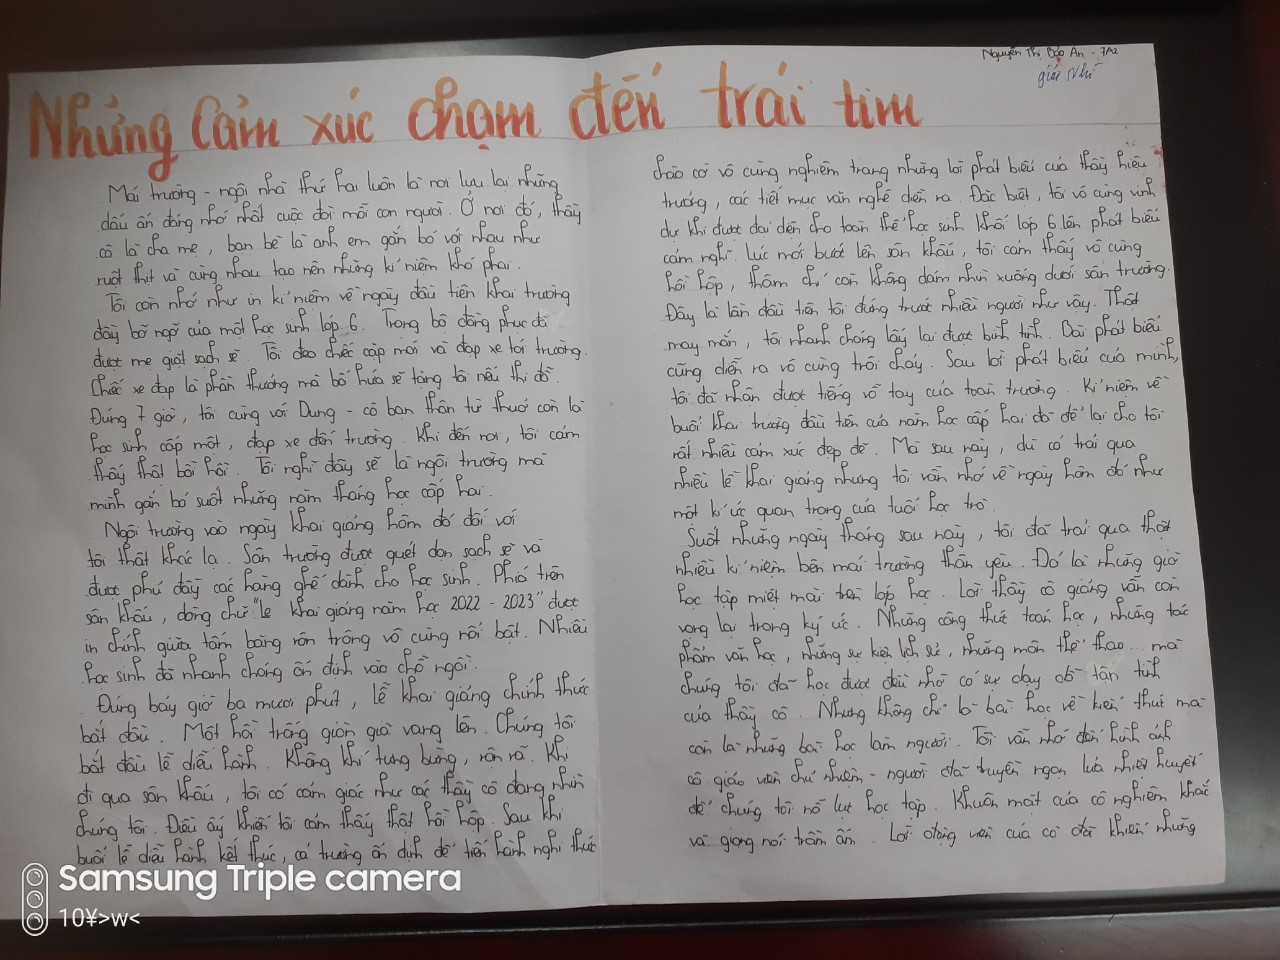 Nguyễn Thị Bảo An - 7A2
giải Nhì
Những Cảm xúc chạm đến trái tim
Mái trường - ngôi nhà thứ hai luôn là nơi lưu lại những
dấu ấn đáng nhớ nhất cuộc đời mỗi con người. Ở nơi đó, thầy
cô là cha mẹ, bạn bè là anh em gắn bó với nhau như
ruột thịt và cùng nhau tạo nên những kỉ niệm khó phai.
Tôi còn nhớ như in kỉ niệm về ngày đầu tiên khai trường
đầy bỡ ngỡ của một học sinh lớp 6. Trong bộ đồng phục đã
được mẹ giặt sạch sẽ. Tôi đeo chiếc cặp mới và đạp xe tới trường.
Chiếc xe đạp là phần thưởng mà bố hứa sẽ tặng tôi nếu thi đỗ.
Đúng 7 giờ, tôi cùng với Dung - cô bạn thân từ thuở còn là
học sinh cấp một, đạp xe đến trường. Khi đến nơi, tôi cảm
thấy thật bồi hồi. Tôi nghĩ đây sẽ là ngôi trường mà
mình gắn bó suốt những năm tháng học cấp hai.
Ngôi trường vào ngày khai giảng hôm đó đối với
tôi thật khác lạ. Sân trường được quét dọn sạch sẽ và
được phủ đầy các hàng ghế dành cho học sinh. Phía trên
sân khấu, dòng chữ "lễ khai giảng năm học 2022 - 2023" được
in chính giữa tấm băng rôn trông vô cùng nổi bật. Nhiều
học sinh đã nhanh chóng ổn định vào chỗ ngồi.
Đúng bảy giờ ba mươi phút, lễ khai giảng chính thức
bắt đầu. Một hồi trống giòn giã vang lên. Chúng tôi
bắt đầu lễ diễu hành. Không khí tưng bừng, rộn rã. Khi
đi qua sân khấu, tôi có cảm giác như các thầy cô đang nhìn
chúng tôi. Điều ấy khiến tôi cảm thấy thật hồi hộp. Sau khi
buổi lễ diễu hành kết thúc, cả trường ổn định để tiến hành nghi thức
chào cờ vô cùng nghiêm trang những lời phát biểu của thầy hiệu
trưởng, các tiết mục văn nghệ diễn ra. Đặc biệt, tôi vô cùng vinh
dự khi được đại diện cho toàn thể học sinh khối lớp 6 lên phát biểu
cảm nghĩ. Lúc mới bước lên sân khấu, tôi cảm thấy vô cùng
hồi hộp, thậm chí còn không dám nhìn xuống dưới sân trường.
Đây là lần đầu tiên tôi đứng trước nhiều người như vậy. Thật
may mắn, tôi nhanh chóng lấy lại được bình tĩnh. Bài phát biểu
cũng diễn ra vô cùng trôi chảy. Sau lời phát biểu của mình,
tôi đã nhận được tiếng vỗ tay của toàn trường. Kỉ niệm về
buổi khai trường đầu tiên của năm học cấp hai đã để lại cho tôi
rất nhiều cảm xúc đẹp đẽ. Mà sau này, dù có trải qua
nhiều lễ khai giảng nhưng tôi vẫn nhớ về ngày hôm đó như
một kí ức quan trọng của tuổi học trò.
Suốt những ngày tháng sau này, tôi đã trải qua thật
nhiều kỉ niệm bên mái trường thân yêu. Đó là những giờ
học tập miệt mài trên lớp học. Lời thầy cô giảng vẫn còn
vang lại trong ký ức. Những công thức toán học, những tác
phẩm văn học, những sự kiện lịch sử, những môn thể thao... mà
chúng tôi đã học được đều nhờ có sự dạy dỗ tận tình
của thầy cô. Nhưng không chỉ là bài học về kiến thức mà
còn là những bài học làm người. Tôi vẫn nhớ đến hình ảnh
cô giáo viên chủ nhiệm - người đã truyền ngọn lửa nhiệt huyết
để chúng tôi nỗ lực học tập. Khuôn mặt của cô nghiêm khắc
và giọng nói trầm ấm. Lời động viên của cô đã khiến những
Samsung Triple camera
10¥>w<